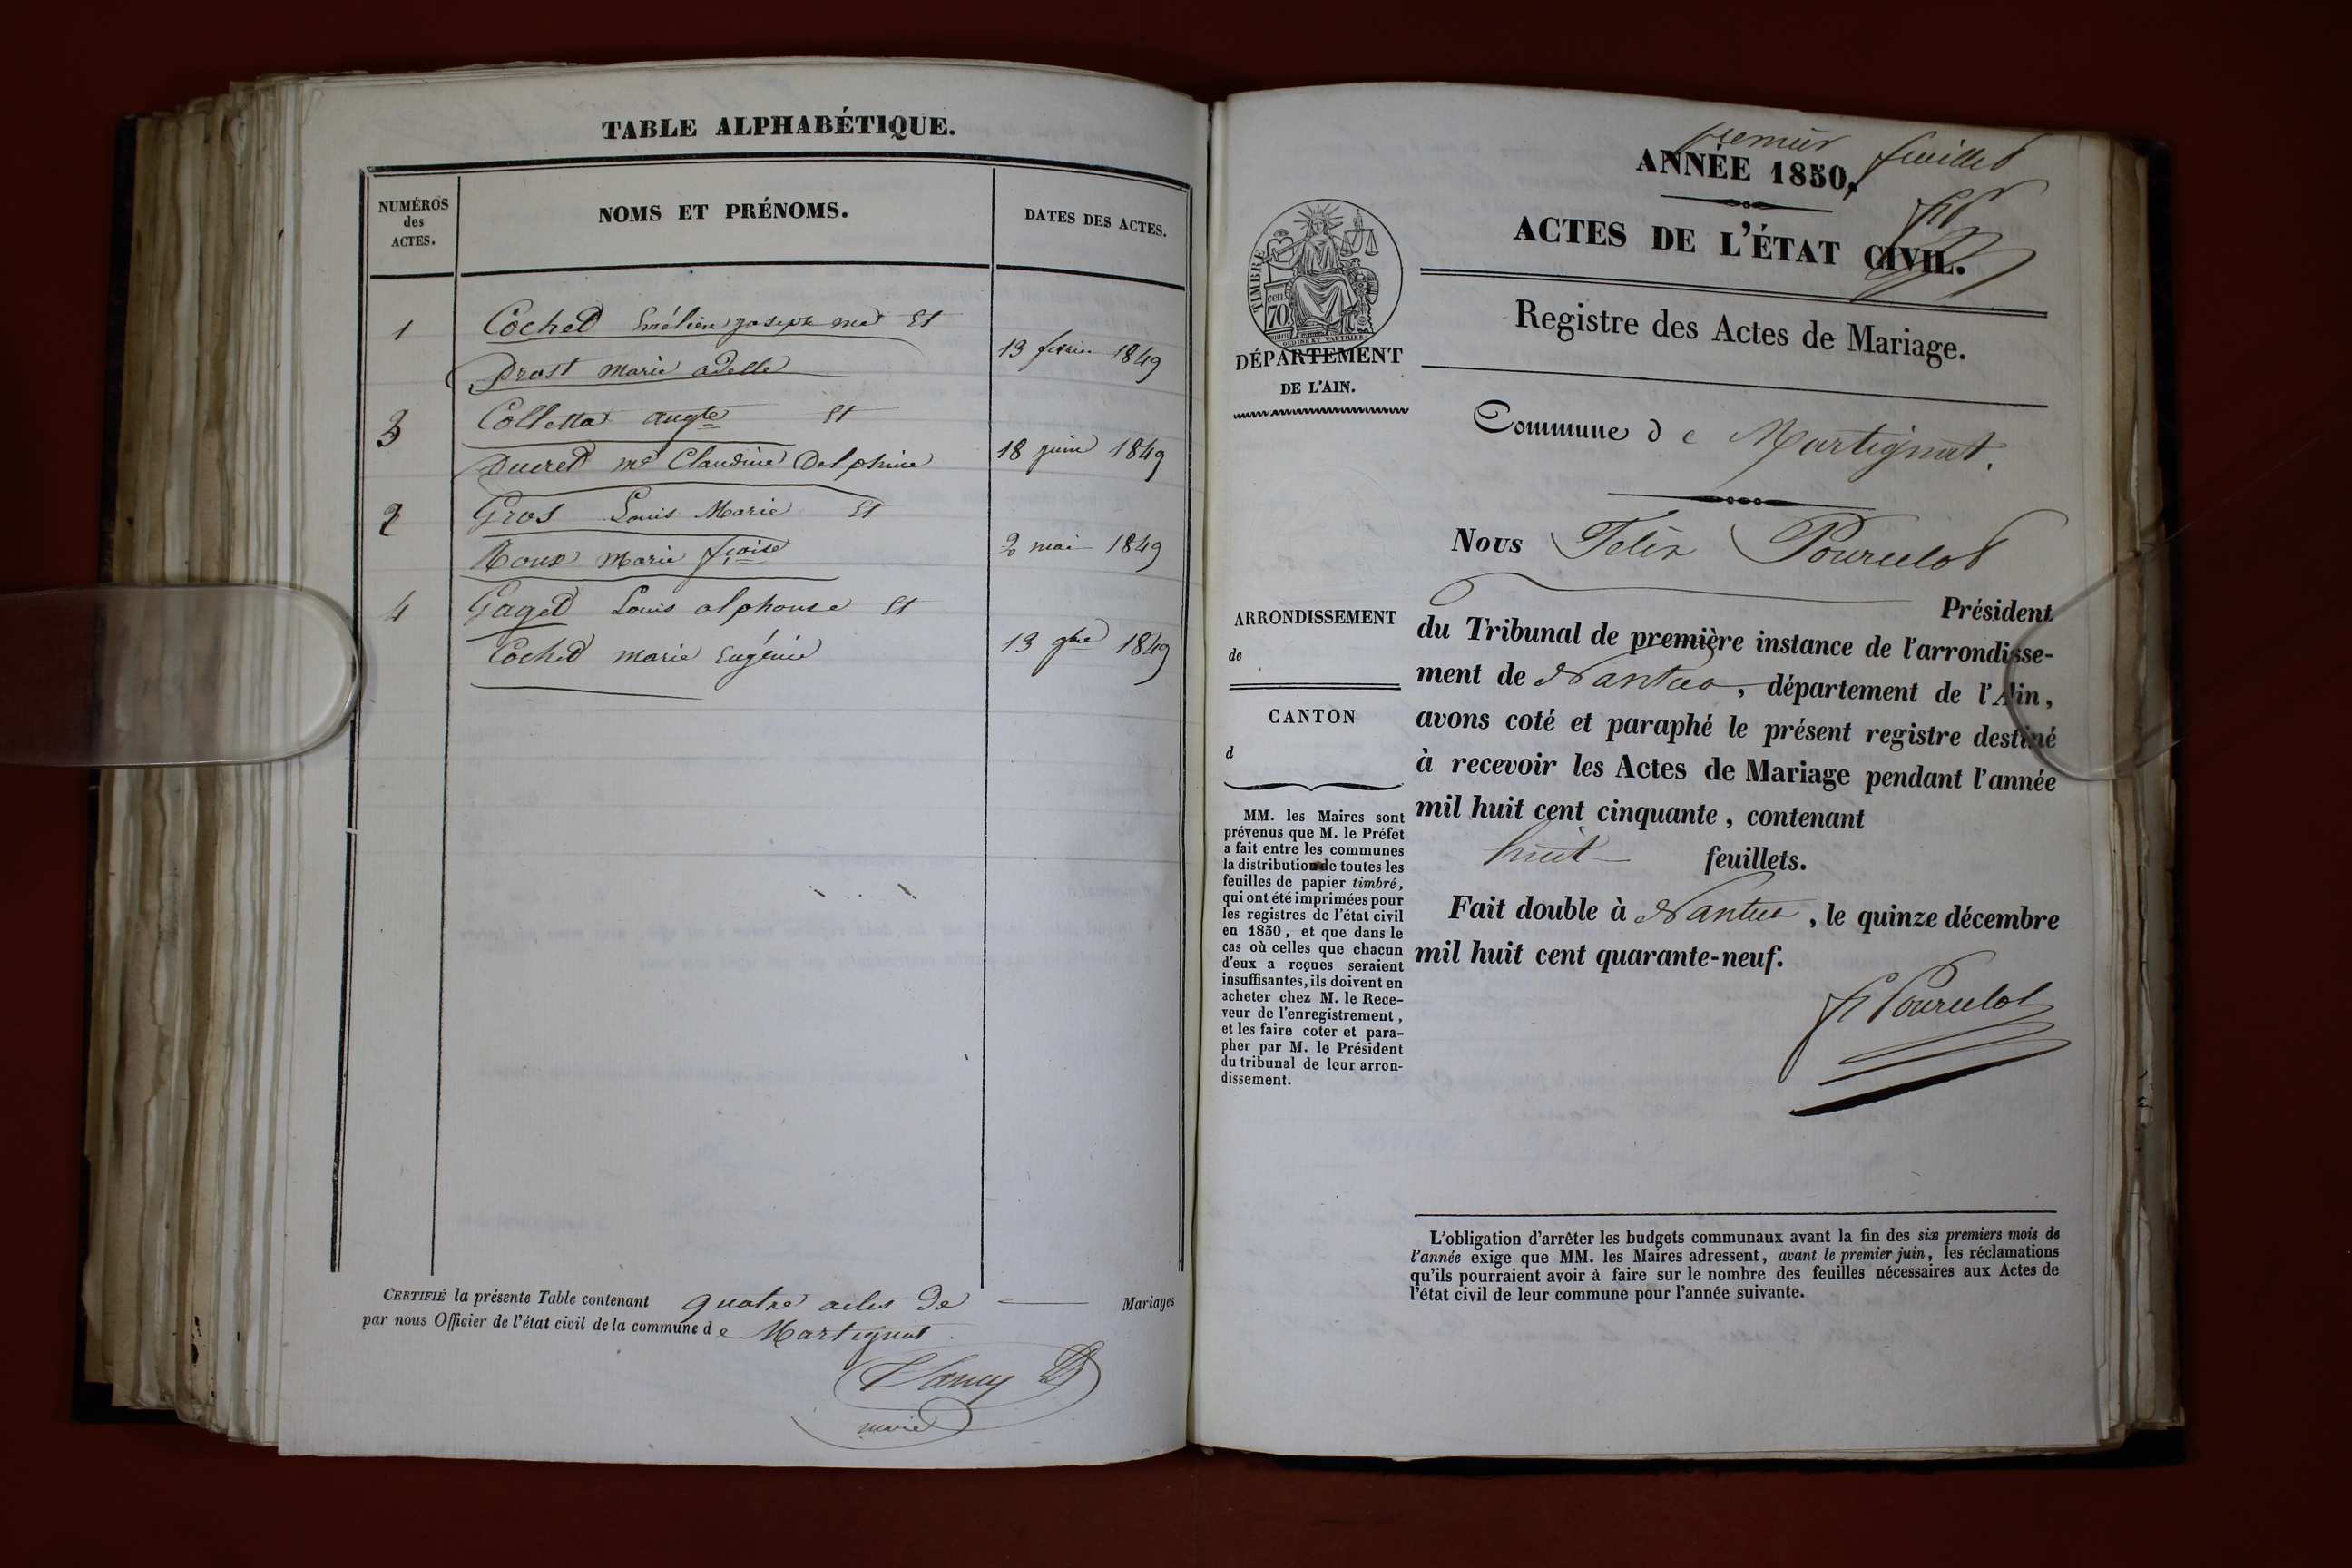 TABLE ALPHABÉTIQUE.
NUMÉROS
des
ACTES.
NOMS ET PRÉNOMS.
DATES DES ACTES.
1
Cochet Emélien joseph me Et
Prost marie adelle
13 février 1849
3
Colletta augte Et
Ducret me Claudine Delphine
18 juin 1849
2
Gros Louis Marie Et
Roux Marie fçoise
2 mai 1849
4
Gaget Louis alphonse Et
Cochet marie Eugénie
13 9bre 1849
CERTIFIÉ la présente Table contenant quatre actes de Mariages
par nous Officier de l'état civil de la commune de Martignat.
maire
premier feuillet
ANNÉE 1850.
ACTES DE L'ÉTAT CIVIL.
Registre des Actes de Mariage.
TIMBRE
cen
70
DÉPARTEMENT
DE L'AIN.
Commune de Martignat.
Nous Félix Pourcelot
Président
du Tribunal de première instance de l'arrondisse-
ment de Nantua, département de l'Ain,
avons coté et paraphé le présent registre destiné
à recevoir les Actes de Mariage pendant l'année
mil huit cent cinquante, contenant
huit feuillets.
Fait double à Nantua, le quinze décembre
mil huit cent quarante-neuf.
Pourcelot
ARRONDISSEMENT
de
CANTON
d
MM. les Maires sont
prévenus que M. le Préfet
a fait entre les communes
la distribution de toutes les
feuilles de papier timbré,
qui ont été imprimées pour
les registres de l'état civil
en 1850, et que dans le
cas où celles que chacun
d'eux a reçues seraient
insuffisantes, ils doivent en
acheter chez M. le Rece-
veur de l'enregistrement,
et les faire coter et para-
pher par M. le Président
du tribunal de leur arron-
dissement.
L'obligation d'arrêter les budgets communaux avant la fin des six premiers mois de
l'année exige que MM. les Maires adressent, avant le premier juin, les réclamations
qu'ils pourraient avoir à faire sur le nombre des feuilles nécessaires aux Actes de
l'état civil de leur commune pour l'année suivante.